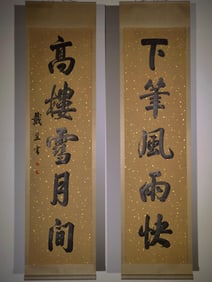 下筆風雨快
高樓雪月间
戴